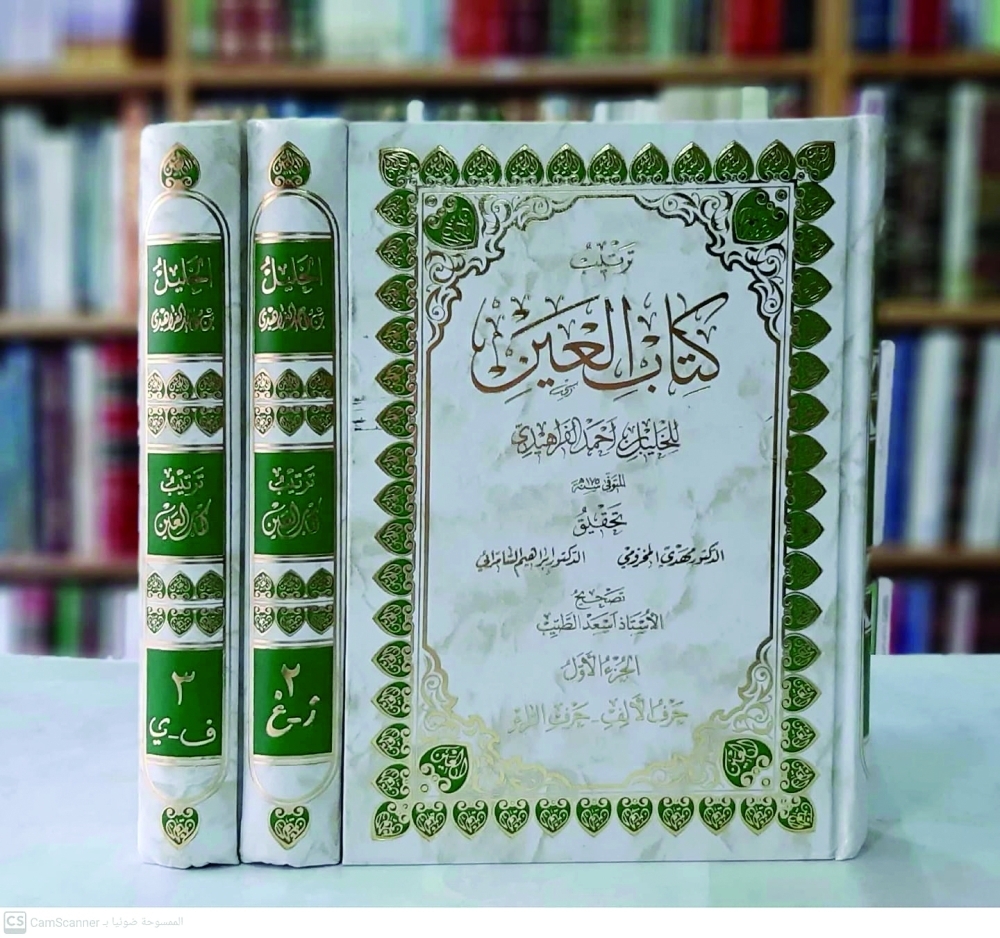 الخليل
بن أحمد الفراهيدي
ترتيب
كتاب العين
٣
ف-ي
الخليل
بن أحمد الفراهيدي
ترتيب
كتاب العين
٢
ز-غ
ترتيب
كتاب العين
للخليل بن أحمد الفراهيدي
المتوفى سنة ١٧٥ هـ
تحقيق
الدكتور مهدي المخزومي الدكتور إبراهيم السامرائي
تصحيح
الأستاذ أسعد الطيب
الجزء الأول
حرف الألف - حرف الراء
CS CamScanner الممسوحة ضوئيا بـ